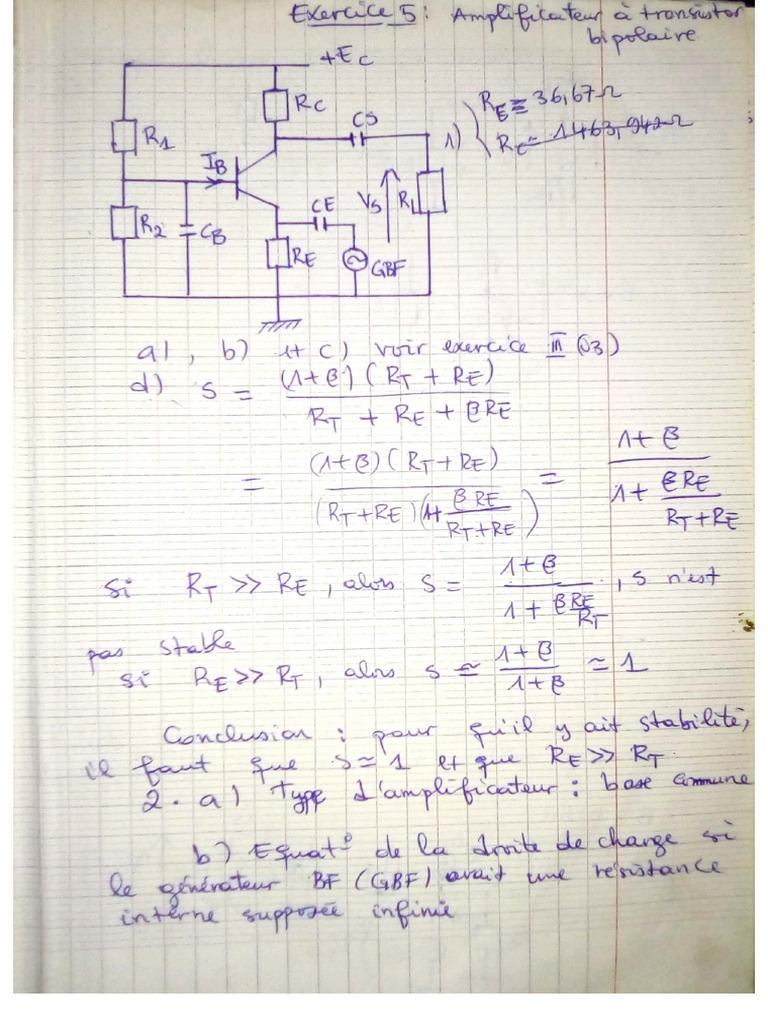 Exercice 5 : Amplificateur à transistor
bipolaire
+EC
RC
CS
R1
IB
1) { RE = 36,67Ω
RC = 1463,942Ω
R2
CB
CE
VS
RL
RE
GBF
a) , b) 1+ c) voir exercice III (03)
d) S = (1+β)(RT + RE) / (RT + RE + βRE)
= (1+β)(RT+RE) / ((RT+RE)(1+ βRE/(RT+RE))) = (1+β) / (1+ βRE/(RT+RE))
si RT >> RE , alors S = (1+β) / (1+βRE/RT) , s n'est
pas stable
si RE >> RT , alors s ≃ (1+β)/(1+β) ≃ 1
Conclusion : pour qu'il y ait stabilité,
il faut que S≃1 et que RE >> RT.
2. a) Type d'amplificateur : base commune
b) Equat° de la droite de charge si
le générateur BF (GBF) avait une résistance
interne supposée infinie